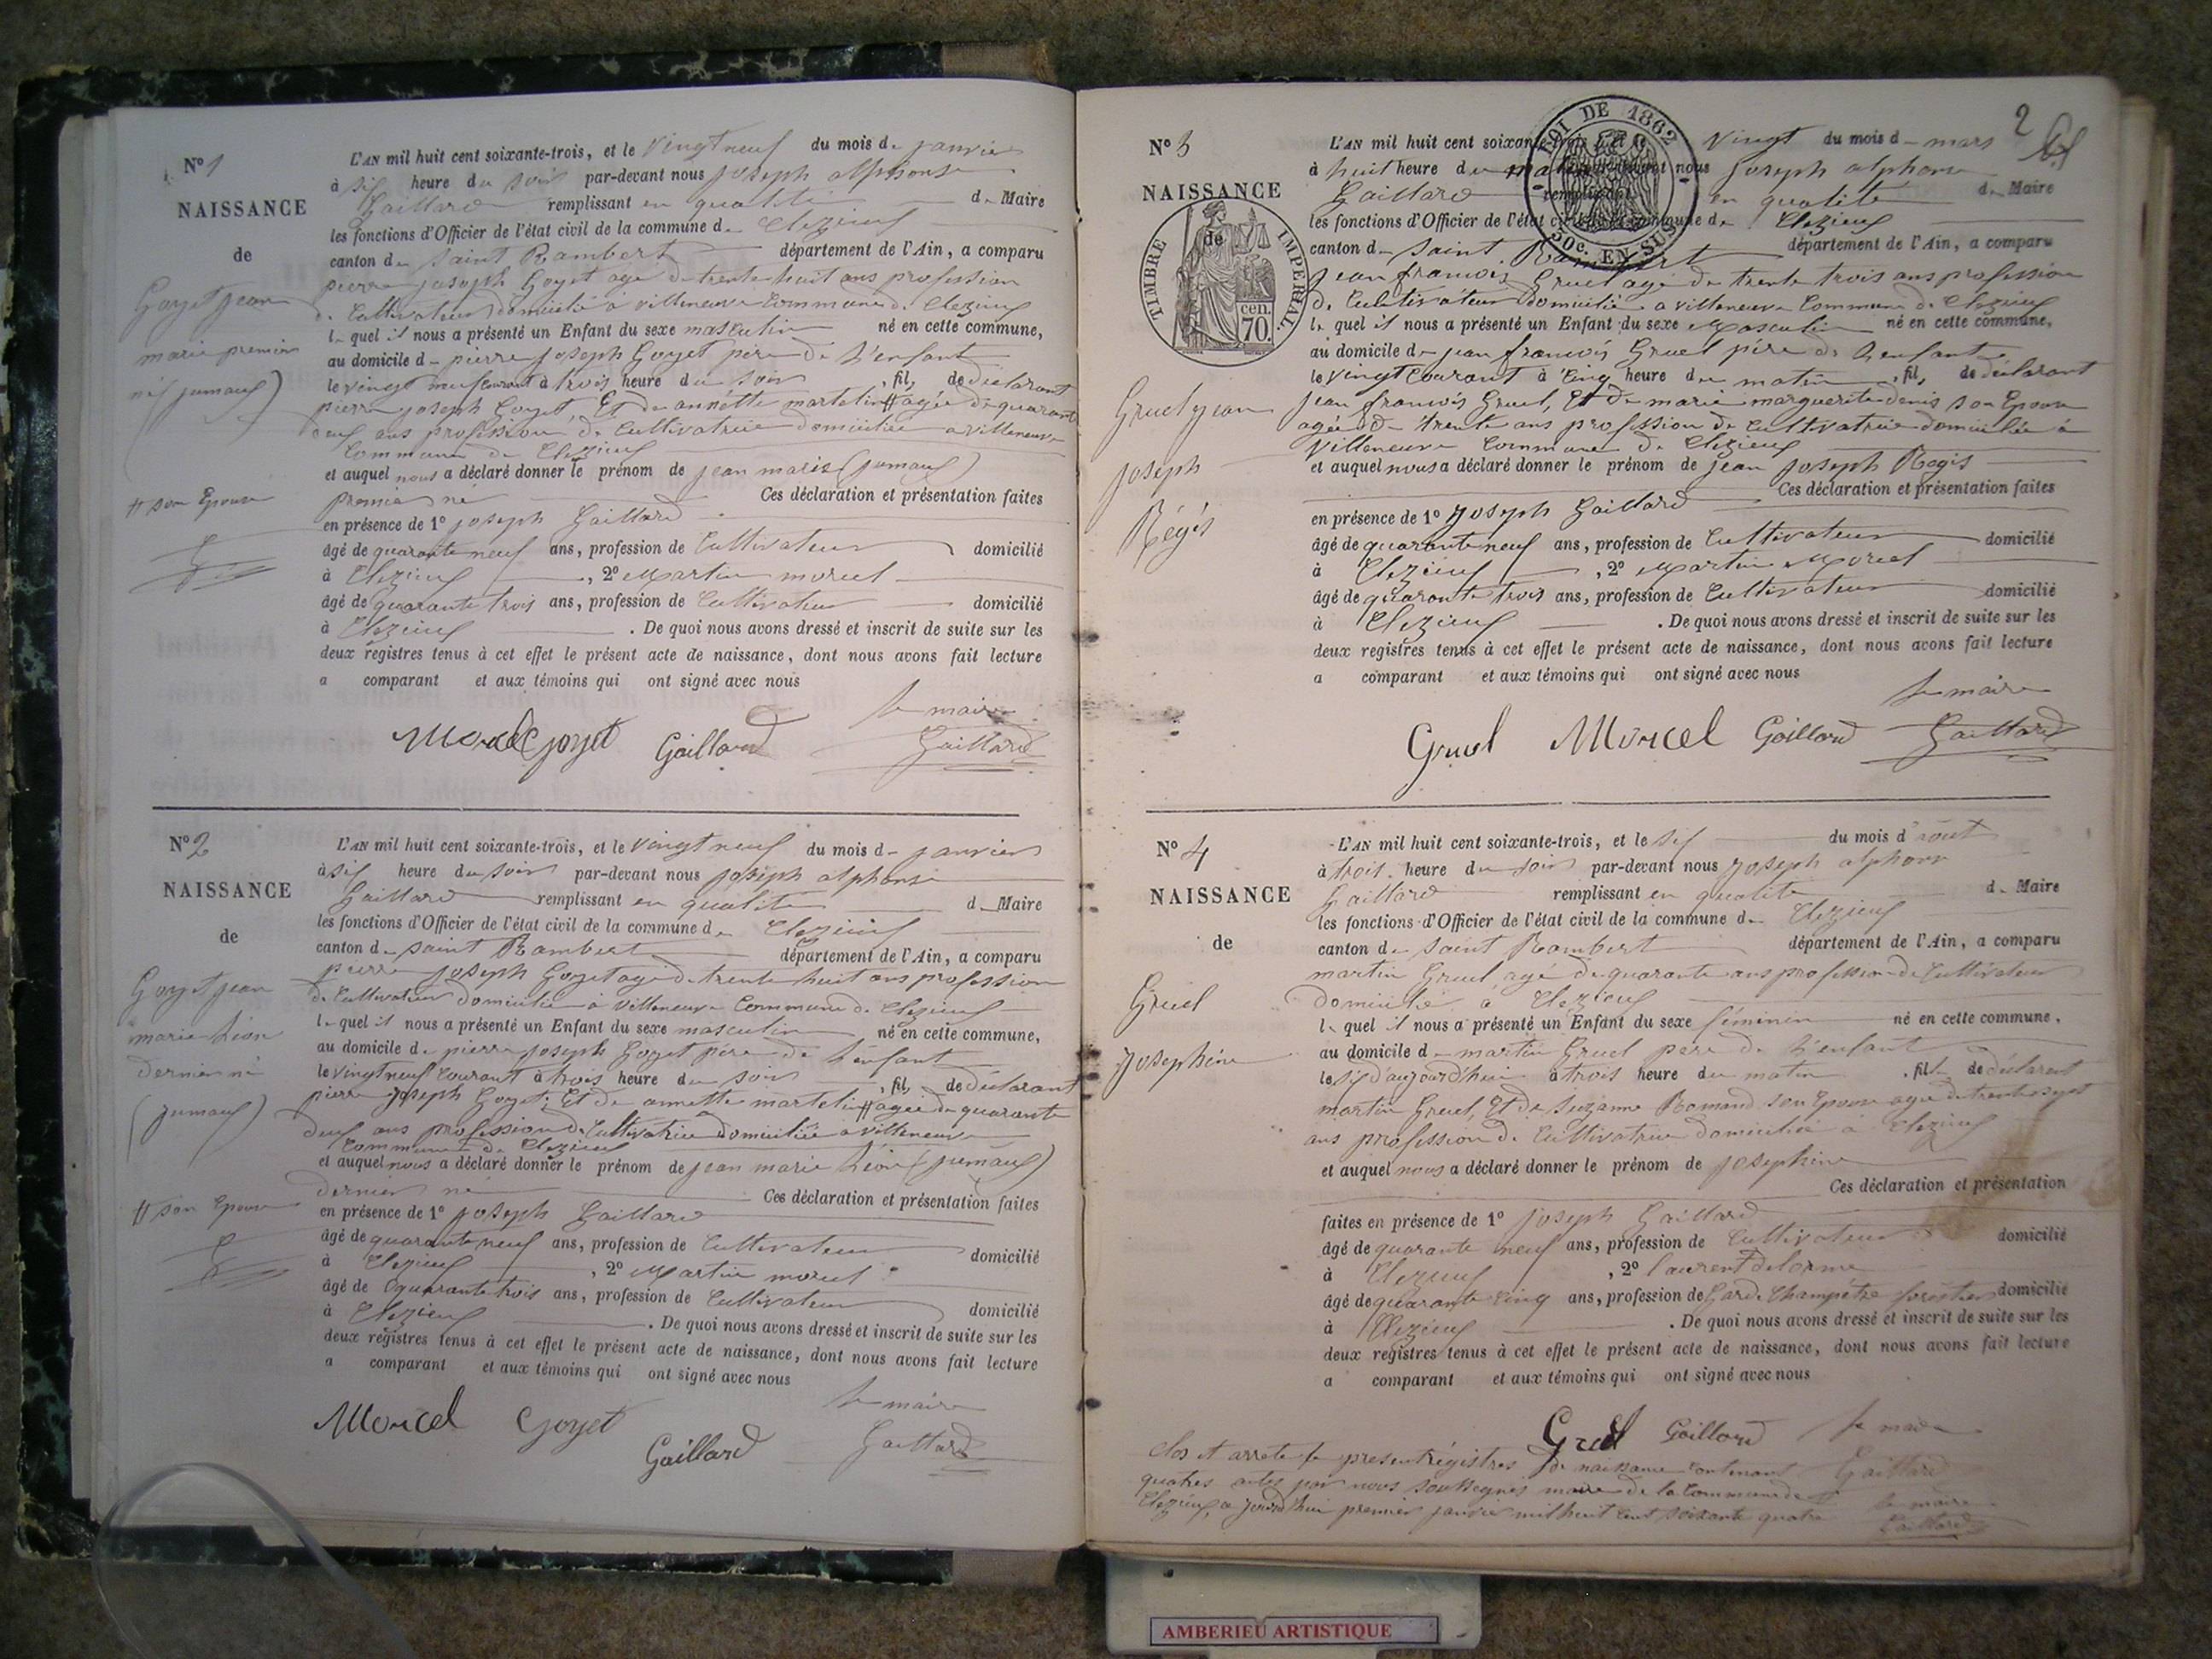 N° 1
NAISSANCE
de
Goyet jean
marie premier
né (jumaux)
# son Epouse
L'AN mil huit cent soixante-trois, et le vingt neuf du mois de janvier
à six heure du soir par-devant nous joseph alphonse
Gaillard remplissant en qualité de Maire
les fonctions d'Officier de l'état civil de la commune de Clezieux
canton de saint Rambert département de l'Ain, a comparu
pierre joseph Goyet agé de trente huit ans profession
de Cultivateur domicilié a villeneuve Commune de Clezieux
lequel il nous a présenté un Enfant du sexe masculin né en cette commune,
au domicile de pierre joseph Goyet père de L'enfant
le vingt neuf courant à trois heure du soir, fils de déclarant
pierre joseph Goyet, Et de annette martelin # agée de quarante
deux ans profession de Cultivatrice domiciliée a villeneuve
Commune de Clezieux
et auquel nous a déclaré donner le prénom de jean marie (jumaux)
premier né Ces déclaration et présentation faites
en présence de 1° joseph Gaillard
âgé de quarante neuf ans, profession de Cultivateur domicilié
à Clezieux, 2° Martin morcel
âgé de quarante trois ans, profession de Cultivateur domicilié
à Clezieux. De quoi nous avons dressé et inscrit de suite sur les
deux registres tenus à cet effet le présent acte de naissance, dont nous avons fait lecture
a comparant et aux témoins qui ont signé avec nous
le maire
Morcel Goyet Gaillard Gaillard
N° 2
NAISSANCE
de
Goyet jean
marie Léon
dernier né
(jumaux)
# son Epouse
L'AN mil huit cent soixante-trois, et le vingt neuf du mois de janvier
à six heure du soir par-devant nous joseph alphonse
Gaillard remplissant en qualité de Maire
les fonctions d'Officier de l'état civil de la commune de Clezieux
canton de saint Rambert département de l'Ain, a comparu
pierre joseph Goyet agé de trente huit ans profession
de Cultivateur domicilié a villeneuve Commune de Clezieux
lequel il nous a présenté un Enfant du sexe masculin né en cette commune,
au domicile de pierre joseph Goyet père de L'enfant
le vingt neuf Courant à trois heure du soir, fils de déclarant
pierre joseph Goyet, Et de annette martelin # agée de quarante
deux ans profession de Cultivatrice domiciliée a villeneuve
Commune de Clezieux
et auquel nous a déclaré donner le prénom de jean marie Léon (jumaux)
dernier né Ces déclaration et présentation faites
en présence de 1° joseph Gaillard
âgé de quarante neuf ans, profession de Cultivateur domicilié
à Clezieux, 2° Martin morcel
âgé de quarante trois ans, profession de Cultivateur domicilié
à Clezieux. De quoi nous avons dressé et inscrit de suite sur les
deux registres tenus à cet effet le présent acte de naissance, dont nous avons fait lecture
a comparant et aux témoins qui ont signé avec nous
le maire
Morcel Goyet Gaillard Gaillard
2
LOI DE 1862
50c. EN SUS
N° 3
NAISSANCE
de
TIMBRE IMPERIAL
cen. 70.
Gruel jean
joseph
Régis
L'AN mil huit cent soixante-trois, et le vingt du mois de mars
à huit heure du matin par-devant nous joseph alphonse
Gaillard remplissant en qualité de Maire
les fonctions d'Officier de l'état civil de la commune de Clezieux
canton de saint Rambert département de l'Ain, a comparu
jean francois Gruel agé de trente trois ans profession
de Cultivateur domicilié a villeneuve Commune de Clezieux
lequel il nous a présenté un Enfant du sexe Masculin né en cette commune,
au domicile de jean francois Gruel père de Lenfant
le vingt courant à Cinq heure du matin, fils de déclarant
jean francois Gruel, Et de marie marguerite denis son Epouse
agée de trente ans profession de Cultivatrice domiciliée a
villeneuve Commune de Clezieux
et auquel nous a déclaré donner le prénom de jean joseph Regis
Ces déclaration et présentation faites
en présence de 1° joseph Gaillard
âgé de quarante neuf ans, profession de Cultivateur domicilié
à Clezieux, 2° Martin Morcel
âgé de quarante trois ans, profession de Cultivateur domicilié
à Clezieux. De quoi nous avons dressé et inscrit de suite sur les
deux registres tenus à cet effet le présent acte de naissance, dont nous avons fait lecture
a comparant et aux témoins qui ont signé avec nous
le maire
Gruel Morcel Gaillard Gaillard
N° 4
NAISSANCE
de
Gruel
Josephine
L'AN mil huit cent soixante-trois, et le six du mois d'août
à trois heure du soir par-devant nous joseph alphonse
Gaillard remplissant en qualité de Maire
les fonctions d'Officier de l'état civil de la commune de Clezieux
canton de saint Rambert département de l'Ain, a comparu
martin Gruel, agé de quarante ans profession de Cultivateur
domicilié à Clezieux
lequel il nous a présenté un Enfant du sexe féminin né en cette commune,
au domicile de martin Gruel père de L'enfant
le six d'aujourd'hui à trois heure du matin, fille de déclarant
martin Gruel, Et de Suzanne Romand son Epouse agée de trente sept
ans profession de Cultivatrice domiciliée à Clezieux
et auquel nous a déclaré donner le prénom de josephine
Ces déclaration et présentation
faites en présence de 1° joseph Gaillard
âgé de quarante neuf ans, profession de Cultivateur domicilié
à Clezieux, 2° laurent delorme
âgé de quarante Cinq ans, profession de Garde Champétre forestier domicilié
à Clezieux. De quoi nous avons dressé et inscrit de suite sur les
deux registres tenus à cet effet le présent acte de naissance, dont nous avons fait lecture
a comparant et aux témoins qui ont signé avec nous
Gruel Gaillard le maire
Gaillard
Clos et arrete le present régistres de naissance contenant
quatres actes par nous soussegnés maire de la commune de
Clezieux, a jourd'hui premier janvier mil huit cent soixante quatre
le maire
Gaillard
AMBERIEU ARTISTIQUE